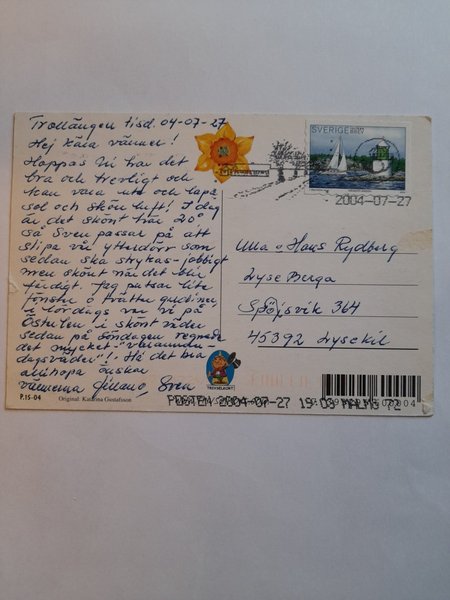 Trollängen tisd. 04-07-27
Hej kära vänner!
Hoppas Ni har det
bra och trevligt och
kan vara ute och lapa
sol och skön luft! I dag
är det skönt här 20°
så Sven passar på att
slipa vår ytterdörr som
sedan ska strykas-jobbigt
men skönt när det blir
färdigt. Jag putsar lite
fönster o tvättar gardiner
i lördags var vi på
i skönt väder
sedan på söndagen regnade
det mycket
dagsväder"! Ha det bra
allihopa önskar
vännerna Sven
P.15-04
Original: Katarina Gustafsson
TROSSELKORT
SVERIGE
BREV
2004-07-27
Ulla o Hans Rydberg
Lyse Berga
Spöjsvik 364
45392 Lysekil
POSTEN 2004-07-27 19:03 MALMÖ 72